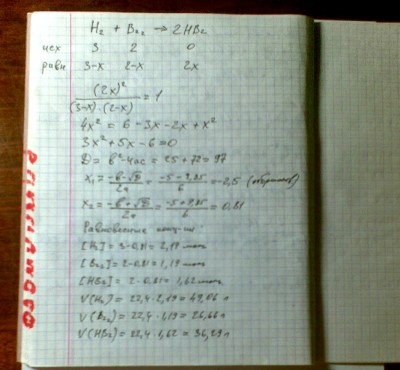 H₂ + Br₂ → 2HBr
исх 3 2 0
равн 3-x 2-x 2x
(2x)² / (3-x)·(2-x) = 1
4x² = 6 - 3x - 2x + x²
3x² + 5x - 6 = 0
D = b² - 4ac = 25 + 72 = 97
x₁ = (-b-√D)/2a = (-5-9,85)/6 = -2,5
x₂ = (-b+√D)/2a = (-5+9,85)/6 = 0,81
Равновесные
[H₂] = 3-0,81 = 2,19 моль
[Br₂] = 2-0,81 = 1,19 моль
[HBr] = 2·0,81 = 1,62 моль
V(H₂) = 22,4·2,19 = 49,06 л
V(Br₂) = 22,4·1,19 = 26,66 л
V(HBr) = 22,4·1,62 = 36,29 л